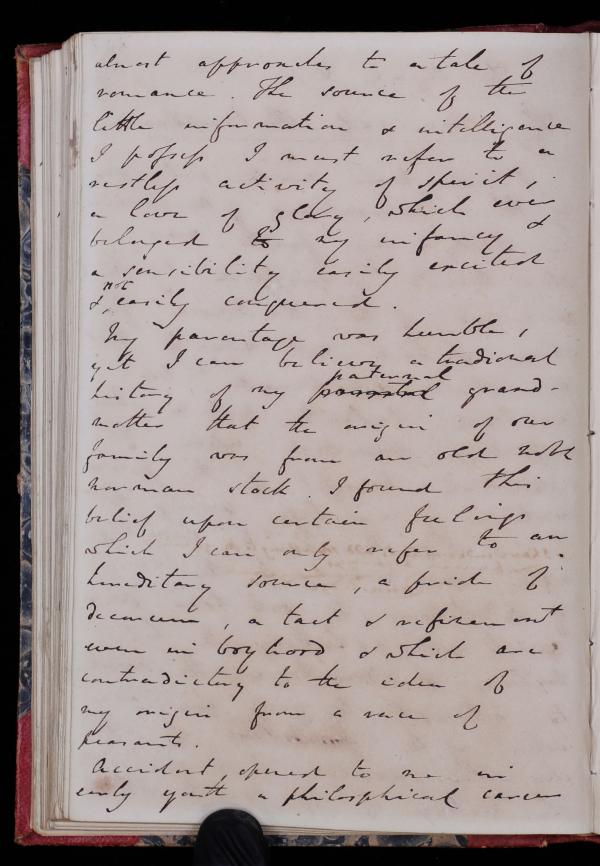 almost approaches to a tale of
romance. The source of the
little information & intelligence
I possess I must refer to a
restless activity of spirit,
a love of glory, which ever
belonged to my infancy &
a sensibility easily excited
& not easily conquered.
My parentage was humble,
yet I can believe a traditional
history of my parental paternal grand-
mother that the origin of our
family was from an old noble
norman stock. I found this
belief upon certain feelings
which I can only refer to an
hereditary source, a pride of
decorum, a tact & refinement
even in boyhood & which are
contradictory to the idea of
my origin from a race of
peasants.
Accident, opened to me in
early youth a philosphical career